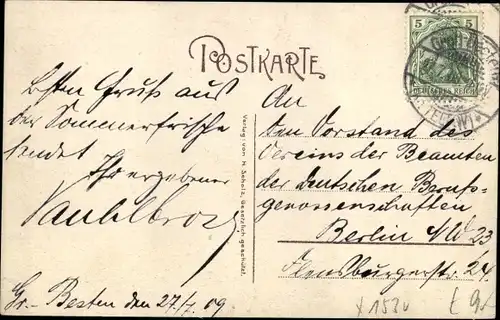 5 5
DEUTSCHES REICH
POSTKARTE
Besten Gruß aus
der Sommerfrische
sendet
Ihr ergebener
An
den Vorstand des
Vereins der Beamten
der Deutschen Berufs-
genossenschaften
Berlin NW 23
Flensburgerstr. 24.
Gr.- Besten den 27/7 09.
Verlag: von H. Scholz, Gesetzlich geschützt.